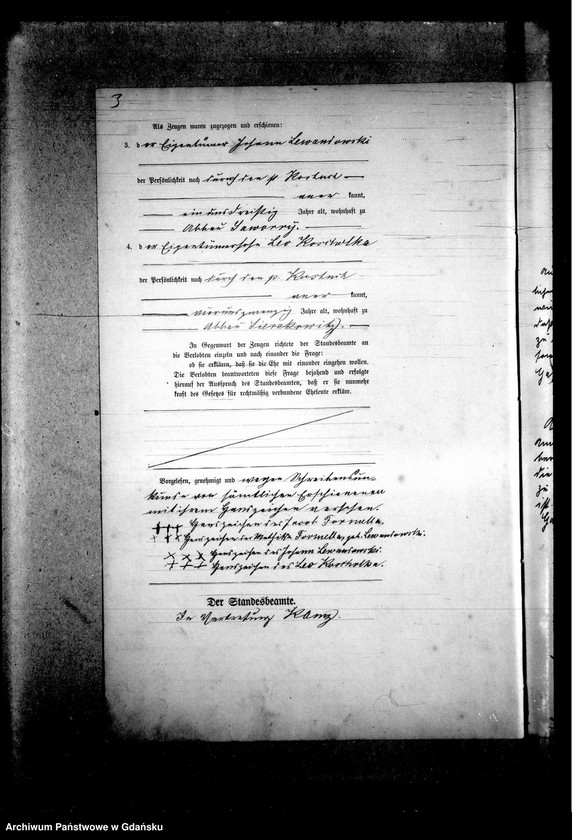 3
Als Zeugen waren zugezogen und erschienen:
3. der Eigentümer Johann Lewandowski
der Persönlichkeit nach durch den p.
kannt,
einunddreißig Jahre alt, wohnhaft zu
Abbau Jaworry.
4. der Eigentümersohn Leo
der Persönlichkeit nach durch den p.
kannt,
vierundzwanzig Jahre alt, wohnhaft zu
Abbau Sierakowitz.
In Gegenwart der Zeugen richtete der Standesbeamte an
die Verlobten einzeln und nach einander die Frage:
ob sie erklären, daß sie die Ehe mit einander eingehen wollen.
Die Verlobten beantworteten diese Frage bejahend und erfolgte
hierauf der Ausspruch des Standesbeamten, daß er sie nunmehr
kraft des Gesetzes für rechtmäßig verbundene Eheleute erkläre.
Vorgelesen, genehmigt und wegen Schreibensun-
kunde von sämtlichen Erschienenen
mit ihrem Handzeichen versehen.
+++ Handzeichen des Jacob Formella.
+++ Handzeichen der Mathilde Formella, geb. Lewandowski.
xxx Handzeichen des Johann Lewandowski.
+++ Handzeichen des Leo
Der Standesbeamte.
In Vertretung
Archiwum Państwowe w Gdańsku